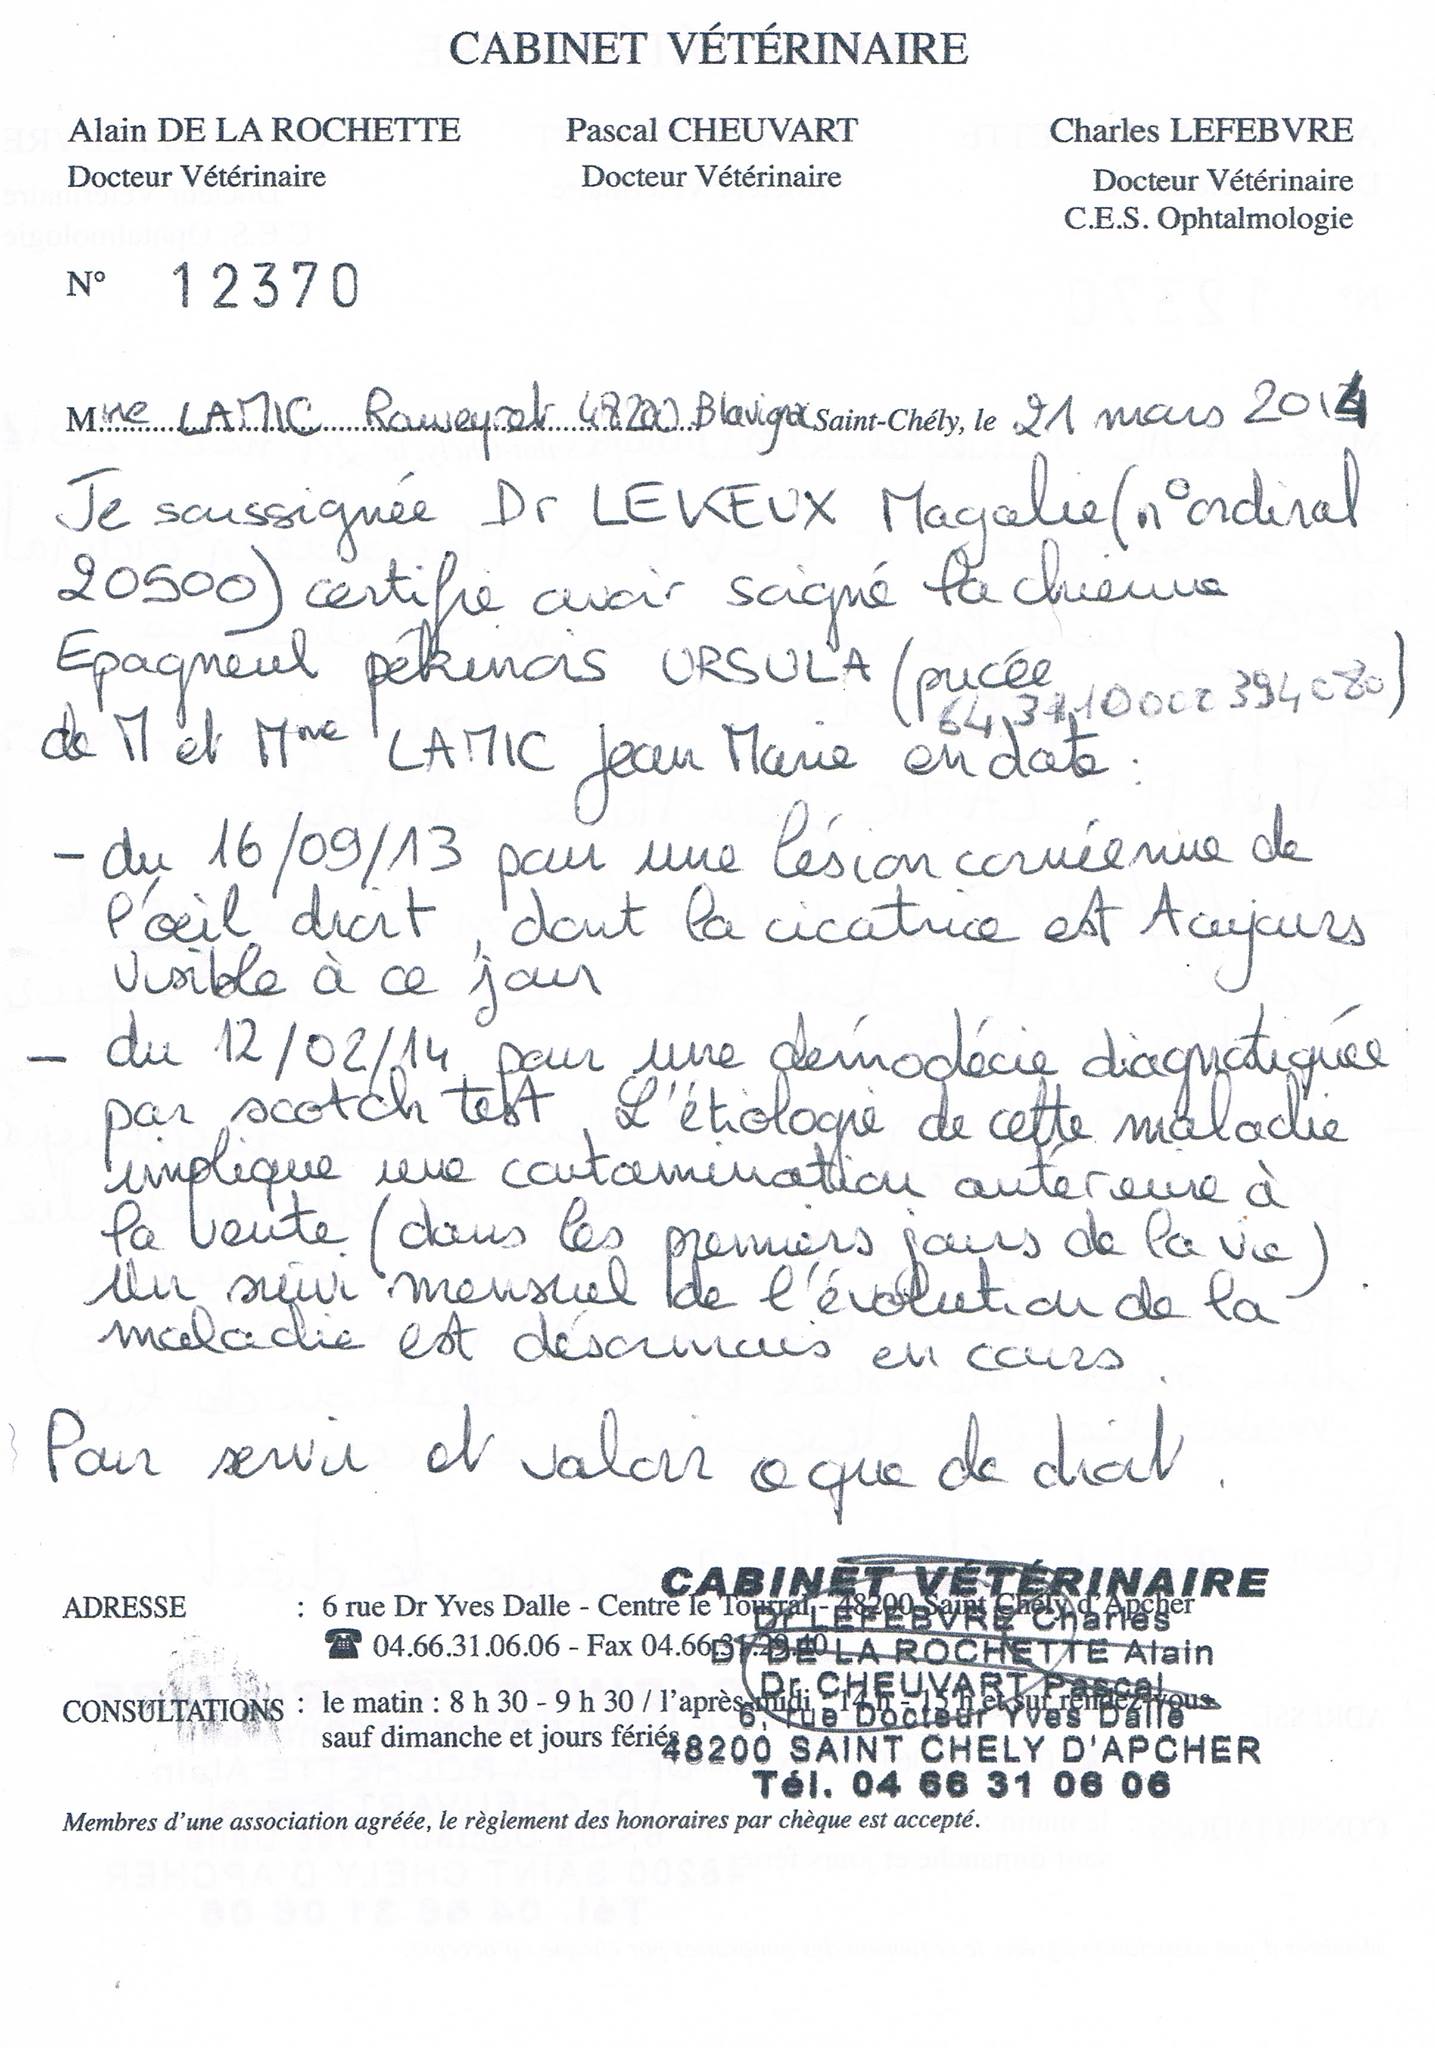 CABINET VÉTÉRINAIRE
Alain DE LA ROCHETTE Pascal CHEUVART Charles LEFEBVRE
Docteur Vétérinaire Docteur Vétérinaire Docteur Vétérinaire
C.E.S. Ophtalmologie
N° 12370
Mme LAMIC 48200 Saint-Chély, le 21 mars 2014
Je soussignée Dr LEVEUX Magalie (n° ordinal
20500) certifie avoir soigné la chienne
Epagneul pékinois URSULA (pucée
)
de M et Mme LAMIC Jean Marie en date :
- du 16/09/13 pour une lésion cornéenne de
l'œil droit, dont la cicatrice est toujours
visible à ce jour
- du 12/02/14 pour une démodécie diagnostiquée
par scotch test. L'étiologie de cette maladie
implique une contamination antérieure à
la vente (dans les premiers jours de la vie).
Un suivi mensuel de l'évolution de la
maladie est désormais en cours.
Pour servir et valoir ce que de droit.
ADRESSE : 6 rue Dr Yves Dalle - Centre le Tourral - 48200 Saint Chély d'Apcher
☎ 04.66.31.06.06 - Fax 04.66.31.29.40
CONSULTATIONS : le matin : 8 h 30 - 9 h 30 / l'après-midi - 14 h - 15 h et sur rendez-vous
sauf dimanche et jours fériés
CABINET VÉTÉRINAIRE
Dr LEFEBVRE Charles
Dr DE LA ROCHETTE Alain
Dr CHEUVART Pascal
6, rue Docteur Yves Dalle
48200 SAINT CHELY D'APCHER
Tél. 04 66 31 06 06
Membres d'une association agréée, le règlement des honoraires par chèque est accepté.